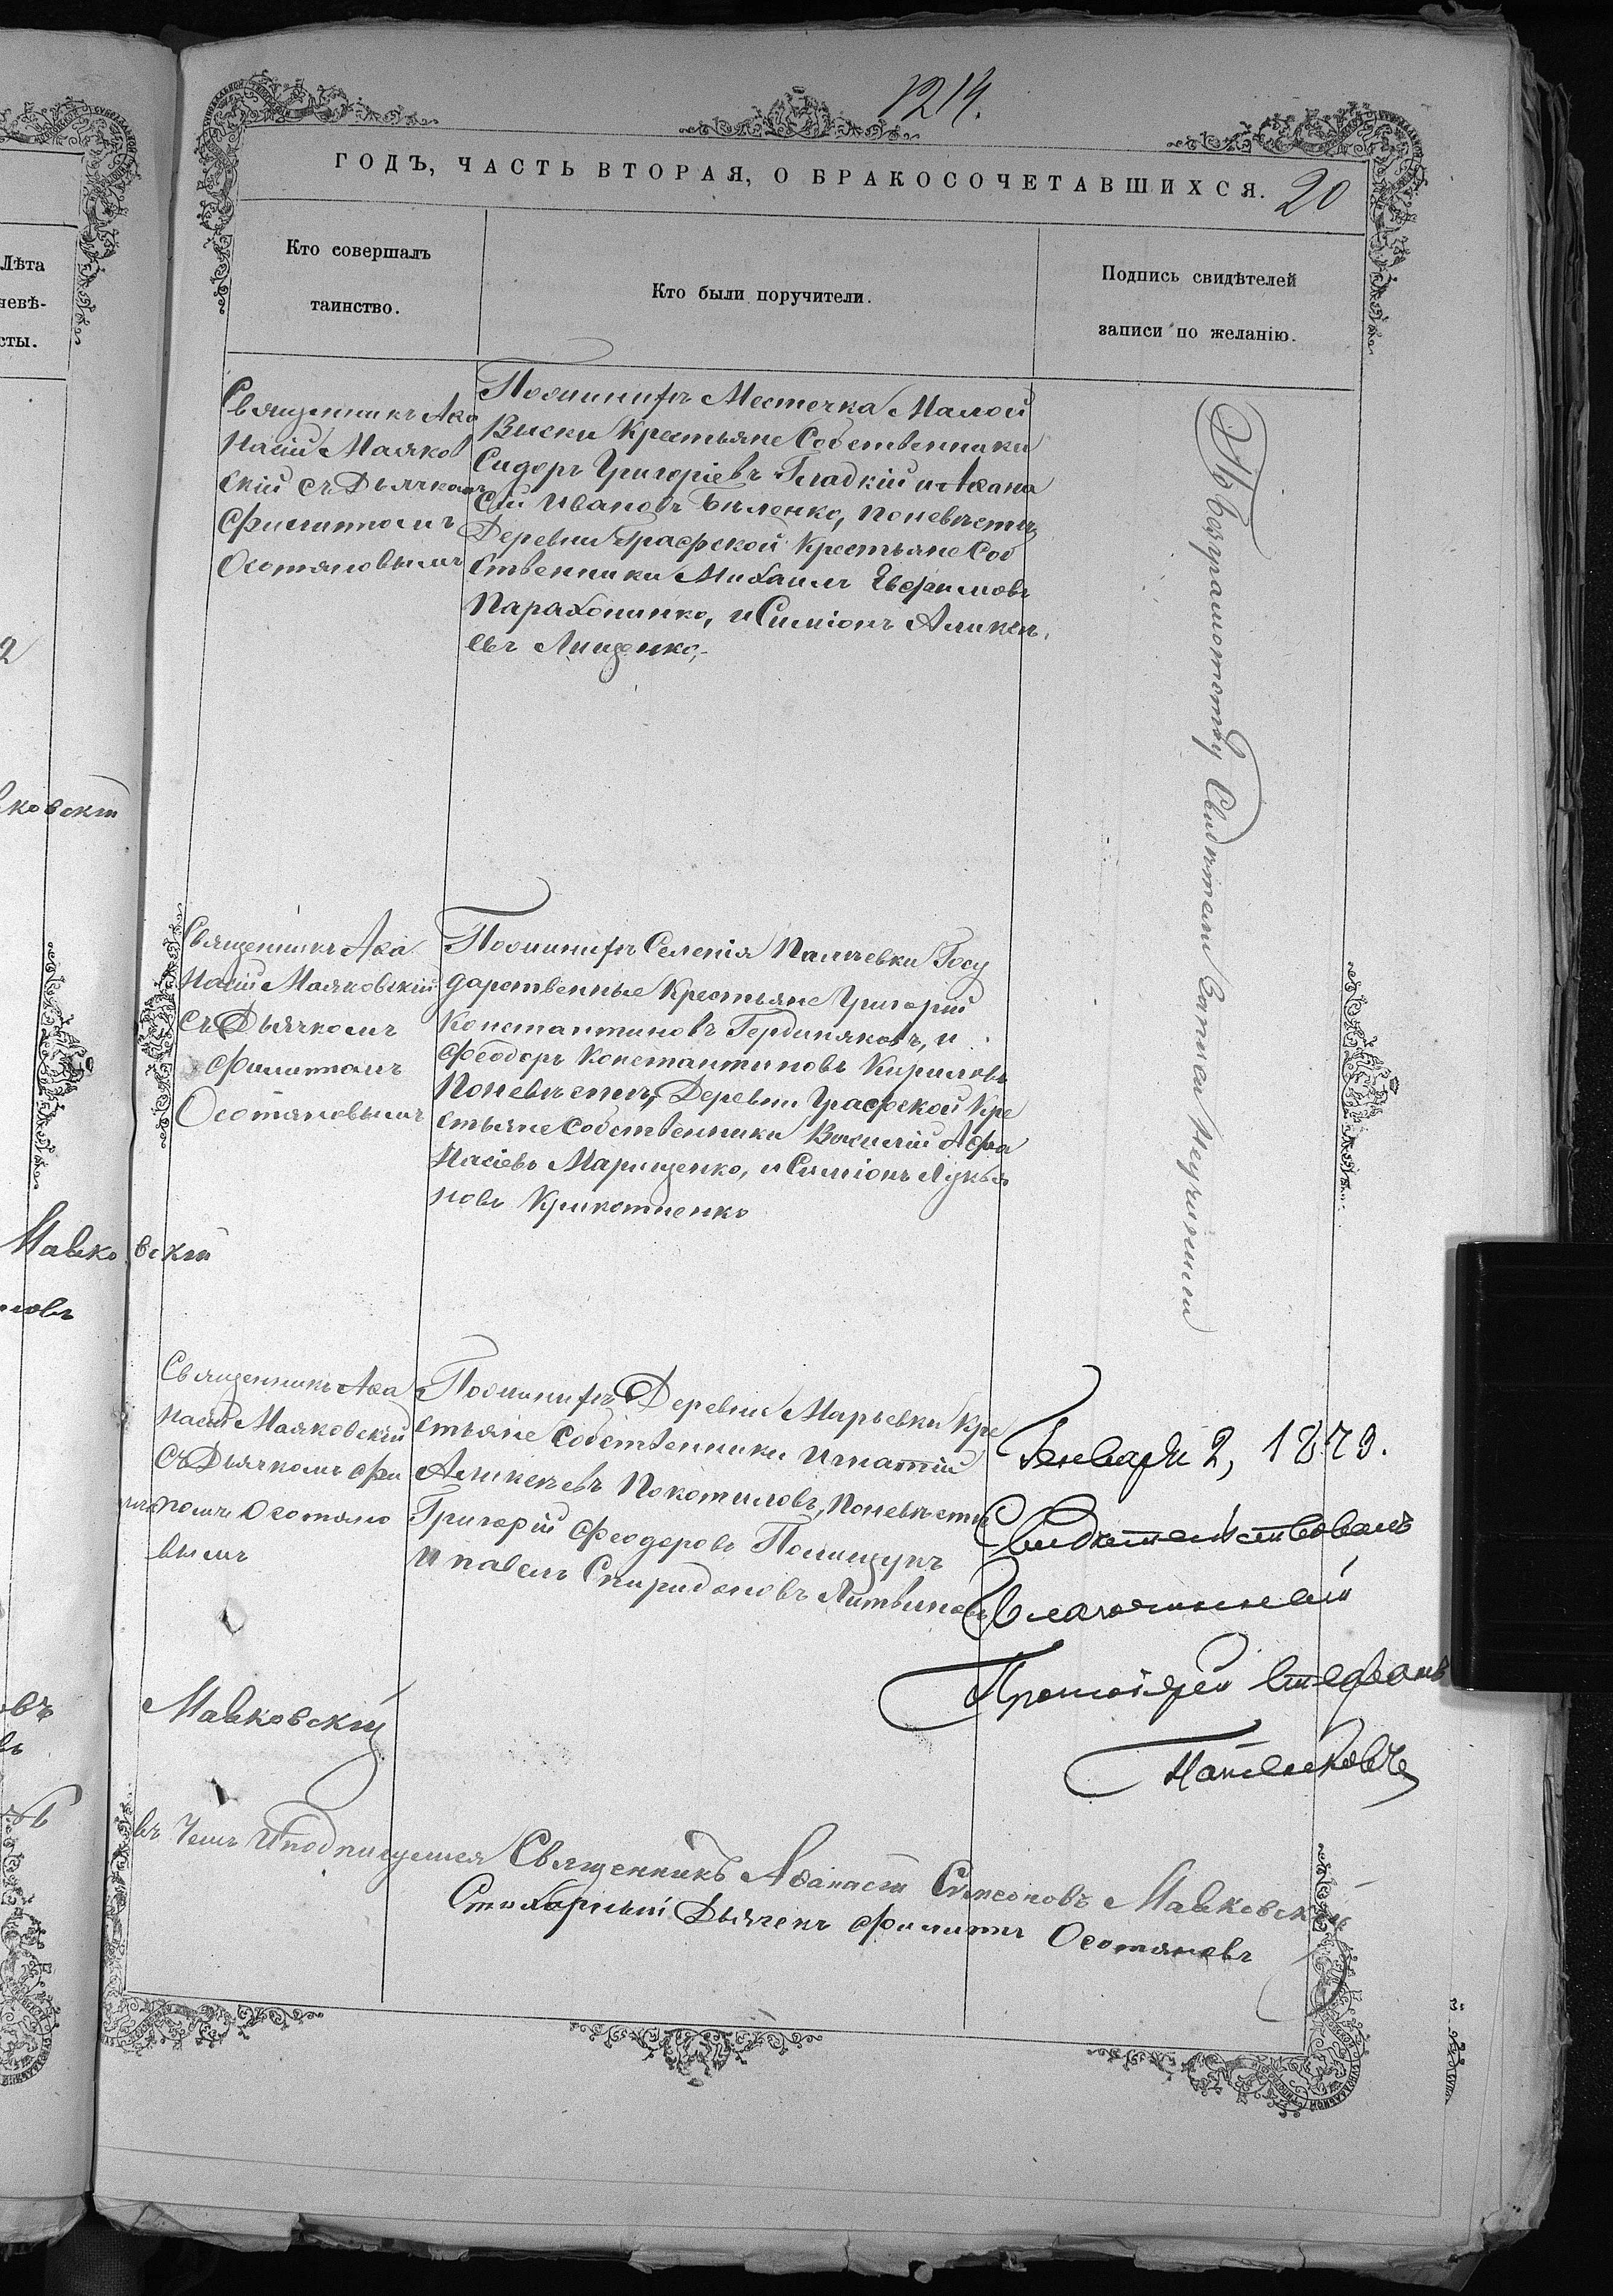 1214.
ГОДЪ, ЧАСТЬ ВТОРАЯ, О БРАКОСОЧЕТАВШИХСЯ.
20
Лѣта
невѣ-
сты.
Кто совершалъ
таинство.
Кто были поручители.
Подпись свидѣтелей
записи по желанію.
Священникъ Аѳа
насій Маяков
скій съ Дьячкомъ
Филиппомъ
Осотяновымъ
По женихѣ Местечка Малой
Виски Крестьяне Собственники
Сидоръ Григоріевъ Гладкій и Аѳана
сій Ивановъ Биленко, по невѣстѣ,
Деревни Графской Крестьяне Соб
ственники Михаилъ Ефимовъ
Парахоненко, и Симіонъ
евъ Лищенко,
По безграмотству Свидѣтели
Священникъ Аѳа
насій Маяковскій
съ Дьячкомъ
Филиппомъ
Осотяновымъ
По женихѣ Селенія Палиевки Госу
дарственные Крестьяне Григорій
Константиновъ и
Феодоръ Константиновъ Кириловъ
По невѣстѣ, Деревни Графской Кре
стьяне Собственники Василій Афа
насіевъ Марищенко, и Симіонъ Лукья
новъ
Священникъ Аѳа
насій Маяковскій
съ Дьячкомъ Фи
липпомъ Осотяно
вымъ
По женихѣ Деревни Марьевки Кре
стьяне Собственники Игнатій
Покотиловъ, По невѣстѣ
Григорій Феодоровъ Полищукъ
и павелъ Спиридоновъ Литвиновъ
Генваря 2, 1879.
Свидѣтельствовалъ
Благочинный
Протоіерей Стефанъ
Маяковскій
въ чемъ и подписуемся Священникъ Аѳанасій Симеоновъ Маяковскій
Стихарный Дьячекъ Филиппъ Осотяновъ